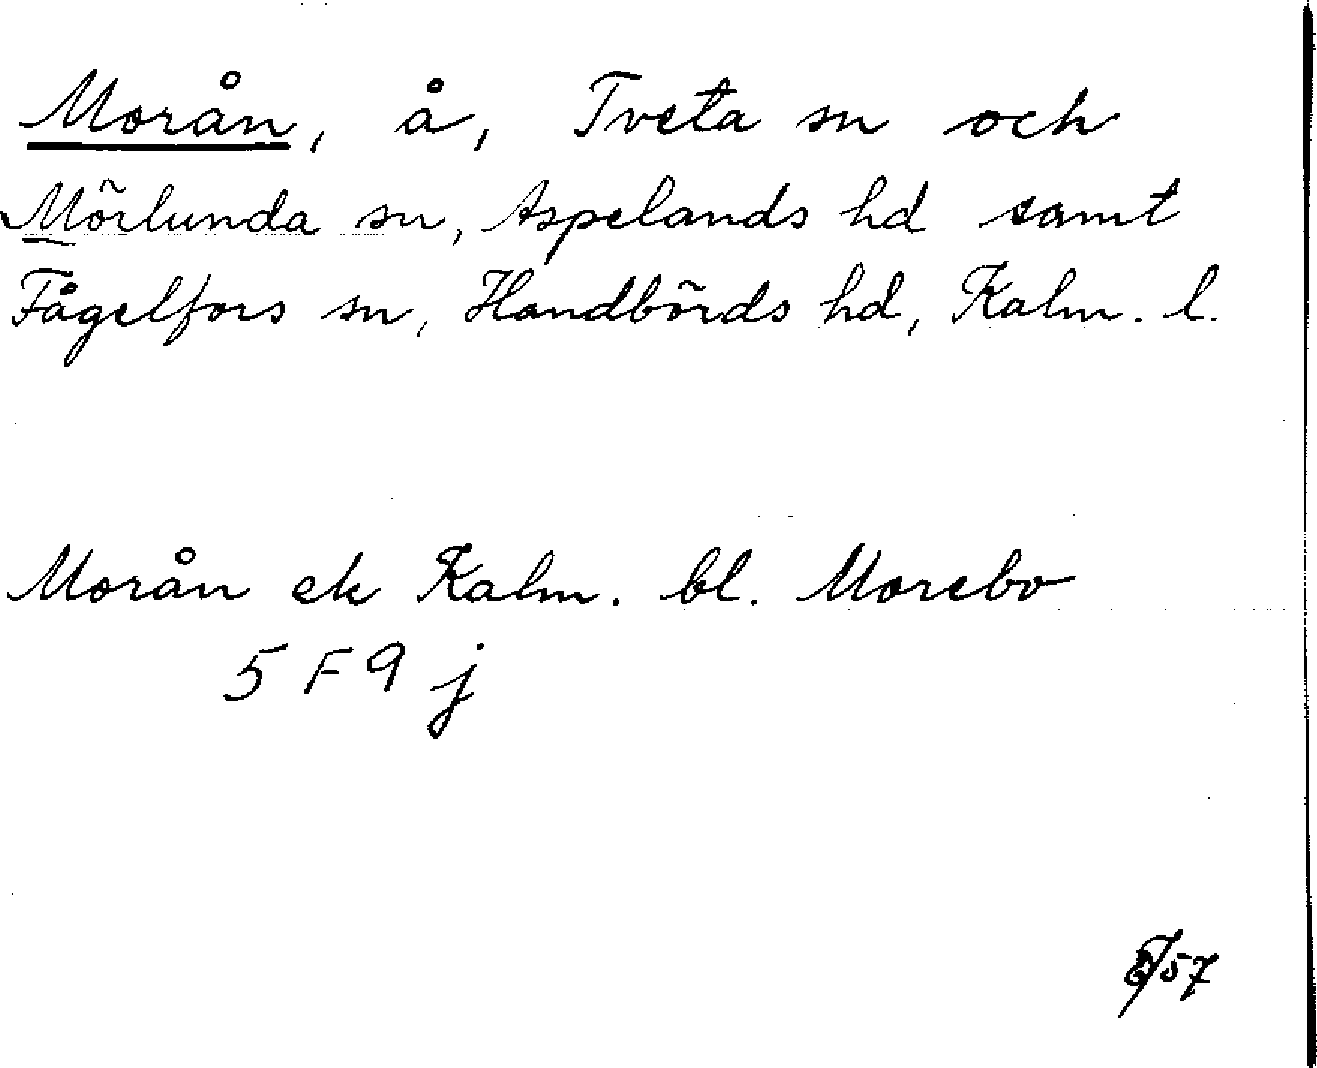 Morån, å, Tveta sn och
Mörlunda sn, Aspelands hd samt
Fågelfors sn, Handbörds hd, Kalm. l.
Morån ek Kalm. bl. Morebo
5 F 9 j
57